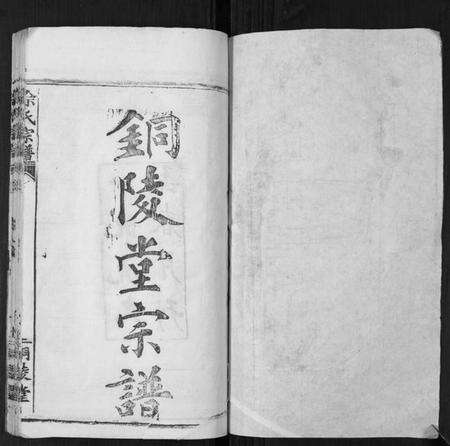 銅陵堂宗譜
徐氏宗譜
銅陵堂